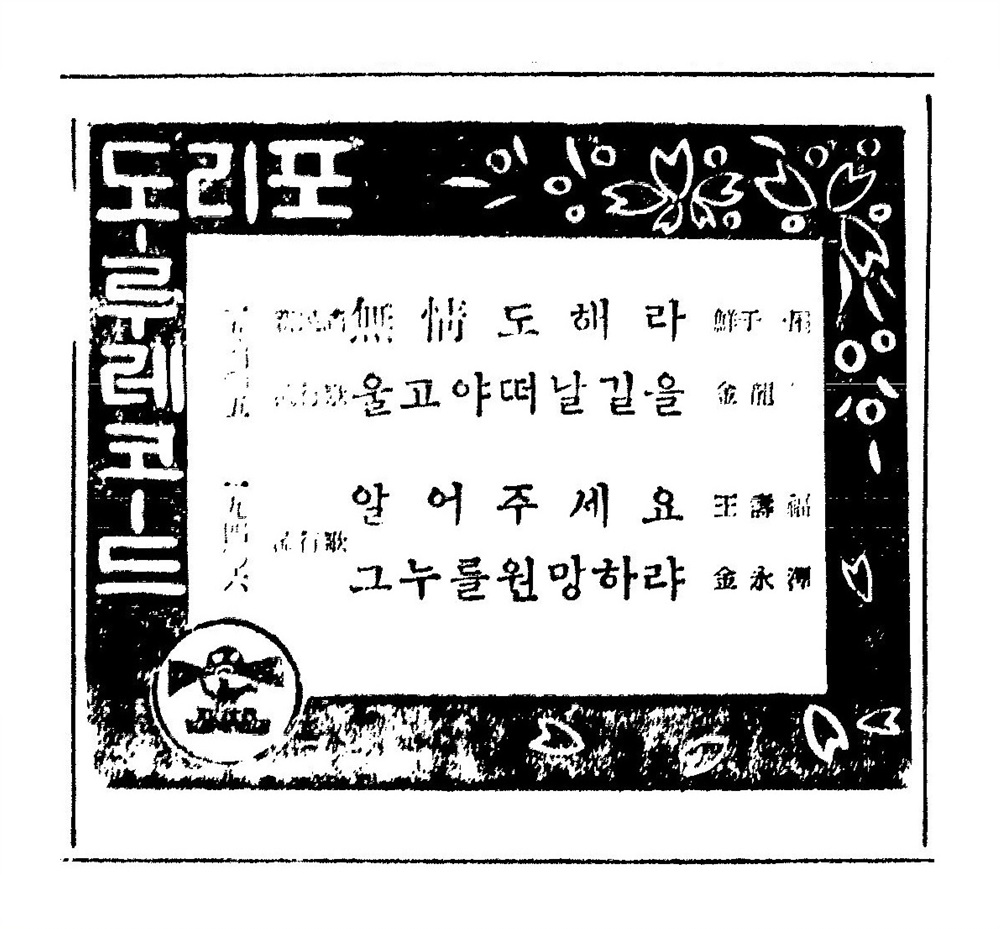 포리도-루레코-드
無情도해라
流行歌 울고야떠날길을 金龍
一九四六 流行歌
알어주세요 王壽福
그누를원망하랴 金永